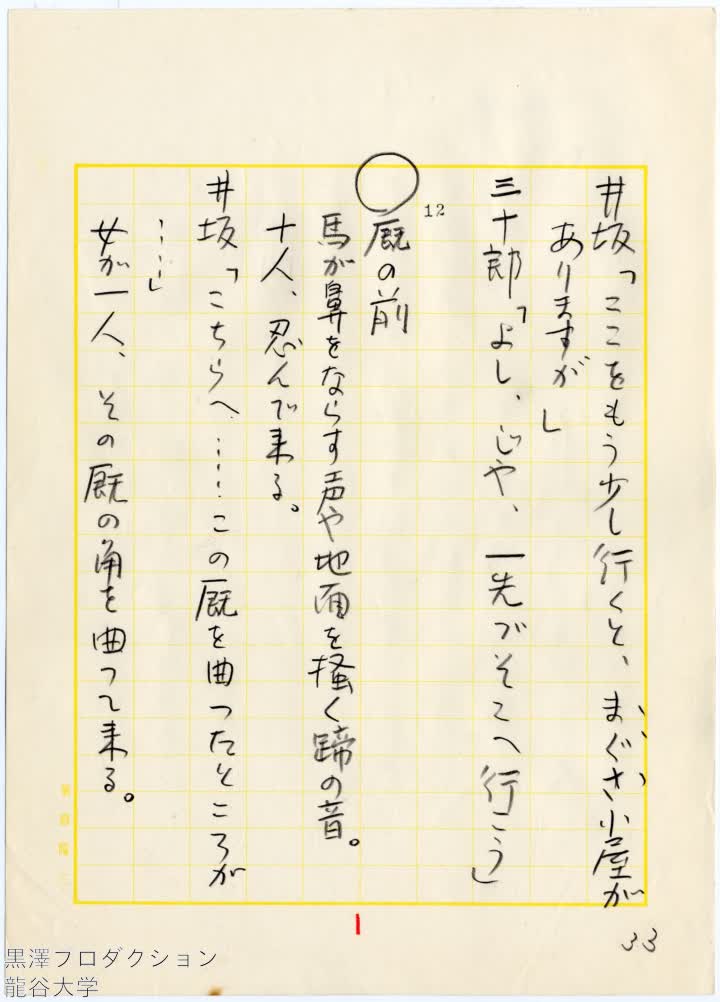 井坂「ここをもう少し行くと、まぐさ小屋が
ありますが」
三十郎「よし、じや、一先づそこへ行こう」
12
○厩の前
馬が鼻をならす声や地面を掻く蹄の音。
十人、忍んで来る。
井坂「こちらへ……この厩を曲つたところが
……」
女が一人、その厩の角を曲つて来る。
1
33
黒澤プロダクション
龍谷大学